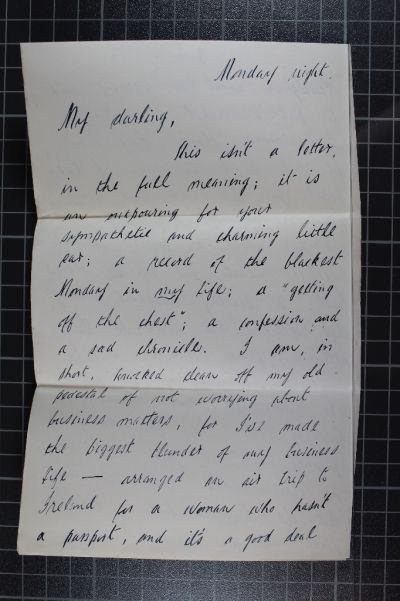 Monday night.
My darling,
This isn't a letter,
in the full meaning; it is
an outpouring for your
sympathetic and charming little
ear; a record of the blackest
Monday in my life; a "getting
off the chest"; a confession and
a sad chronicle. I am, in
short, knocked clean off my old
pedestal of not worrying about
business matters, for I've made
the biggest blunder of my business
life — arranged an air trip to
Ireland for a woman who hasn't
a passport, and it's a good deal